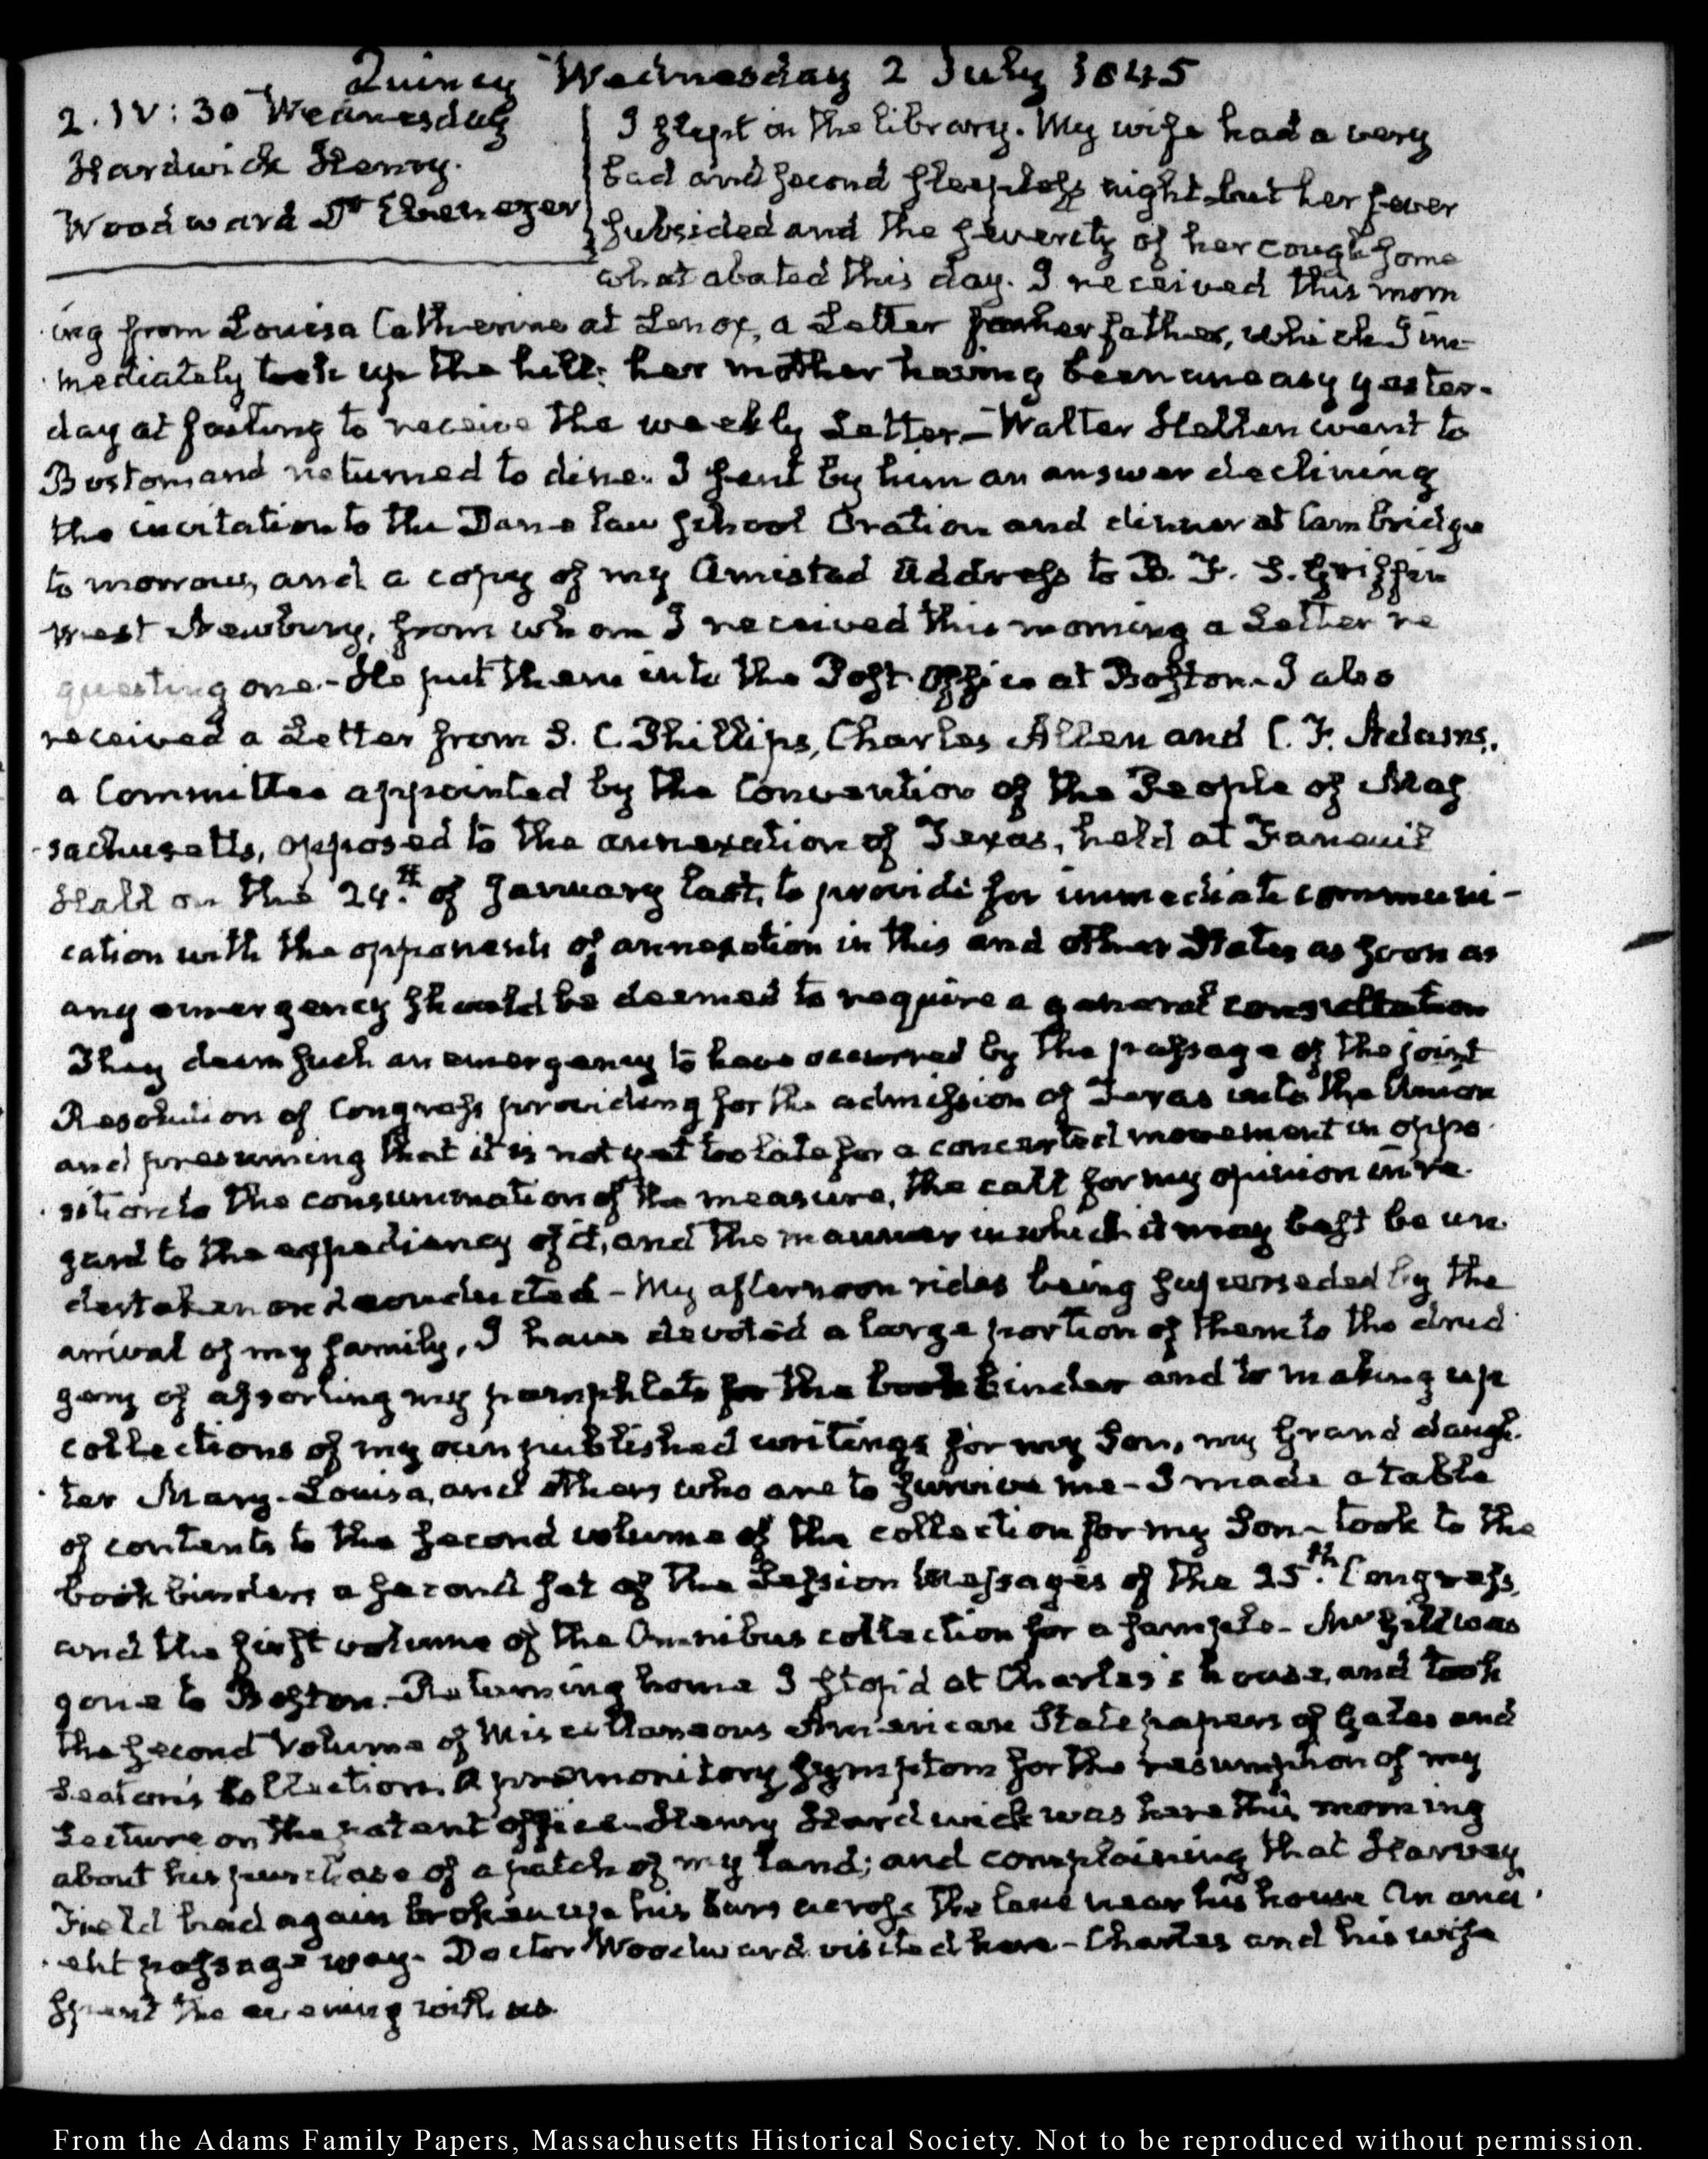 Quincy Wednesday 2 July 1845
2. IV: 30 Wednesday
Hardwick Henry.
Woodward Dr Ebenezer
I slept in the library. My wife had a very
bad and second sleepless night, but her fever
subsided and the severity of her cough some
what abated this day. I received this morn
ing from Louisa Catherine at Lenox, a Letter for her father, which I im-
mediately took up the hill: her mother having been uneasy yester-
day at failing to receive the weekly Letter – Walter Hellen went to
Boston and returned to dine. I sent by him an answer declining
the invitation to the Dane law School Oration and dinner at Cambridge
to morrow, and a copy of my Amistad Address to B. F. S. Griffin
West Newbury, from whom I received this morning a Letter re
questing one – He put them into the Post Office at Boston. I also
received a Letter from S. C. Phillips, Charles Allen and C. F. Adams,
a Committee appointed by the Convention of the People of Mas
sachusetts, opposed to the annexation of Texas, held at Faneuil
Hall on the 24th of January last, to provide for immediate communi-
cation with the opponents of annexation in this and other States as soon as
any emergency should be deemed to require a general consultation
They deem such an emergency to have occurred by the passage of the joint
Resolution of Congress providing for the admission of Texas into the Union
and presuming that it is not yet too late for a concerted movement in oppo
sition to the consummation of the measure, the call for my opinion in re
gard to the expediency of it, and the manner in which it may best be un
dertaken and conducted – My afternoon rides being superseded by the
arrival of my family, I have devoted a large portion of them to the drud
gery of assorting my pamphlets for the book binder and to making up
collections of my own published writings for my Son, my Grand daugh
ter Mary-Louisa, and others who are to survive me – I made a table
of contents to the second volume of the collection for my Son – took to the
book binders a second set of the Session Messages of the 25th Congress,
and the first volume of the Omnibus collection for a sample – Mr Gill was
gone to Boston. Returning home I stop'd at Charles's house, and took
the second Volume of Miscellaneous American State papers of Gales and
Seaton's Collection. A premonitory symptom for the resumption of my
Lecture on the patent office – Henry Hardwick was here this morning
about his purchase of a patch of my land; and complaining that Harvey
Field had again broken up his bars across the lane near his house An anci
ent passage way – Doctor Woodward visited here – Charles and his wife
spent the evening with us.
From the Adams Family Papers, Massachusetts Historical Society. Not to be reproduced without permission.